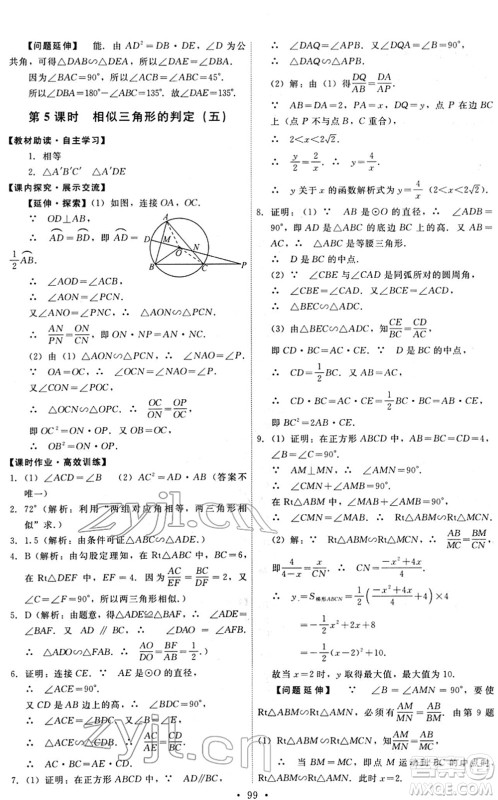 【问题延伸】 能. 由 AD²=DB·DE, ∠D为公
共角, 可得△DAB∽△DEA. ∴ ∠DAB=∠E.
因为∠BAC=90°, 所以∠ABC=∠ABC=45°.
所以∠DBA=180°-∠ABC=180°-45°=135°.
第5课时 相似三角形的判定(五)
【教材助读·自主学习】
1. 相等
2. △A′B′C′ △ABC
【课内探究·展示交流】
【延伸·探索】(1)如图, 连接OA, OC.
∵ OD⊥AB,
∴ AD=BD=
1/2 AB.
∴ ∠AOD=∠ACB,
即∠AON=∠PCN.
又∠ANO=∠PNC, ∴ △AON∽△PCN.
∴ AN/PN=ON/CN, 即AN·NC=ON·PN.
(2)由(1)得△AON∽△PCN, ∠NAO=∠P.
∵ OA=OC, ∴ ∠NAO=∠OCN=∠P.
又∠CON=∠POC,
∴ △OCN∽△OPC. ∴ OC/ON=OP/OC,
即OC²=ON·OP.
∴ OB²=ON·OP.
【课时作业·高效训练】
1. (1)∠ACD=∠B (2)AC²=AD·AB(答案不
唯一)
2. 72°(解析: 利用“两组对应角相等, 两三角形相
似”求.)
3. 1.5(解析: 由条件可证△ABD∽△CBA.)
4. B(解析: 由勾股定理知, 在Rt△ABC中, BC=6,
在Rt△DEF中, EF=2, ∴ AC/DF=BC/EF=2, 又
∠C=∠F=90°, 所以两三角形相似.)
5. D(解析: 由题意, 得△ADE≌△BAF, ∠DEA=
∠BAF. 又 ∴ △AOD∽△BAF. ∴ AO/DO=AB/BF=1/2.
∴ △ADO∽△AFB.)
6. 证明: ∵ ∠ACE=90°,
∴ ∠ACE=90°.
又CD是AB边上的高, ∴ ∠ADC=90°.
∴ ∠ACE=∠BAD.
又∠CAE=∠DAC,
∴ △ACE∽△ADC.
7. (1)证明: ∵ ∠BAC=∠PAQ=90°,
∴ ∠DAQ+∠PAD=∠APB+∠PAD=90°.
∴ ∠DAQ=∠APB. 又∠Q=∠B=90°,
∴ △DAQ∽△APB.
(2)解: ∵ △DAQ∽△APB, ∴ DQ/AB=DA/AP.
由于点P不与点B, C重合, 由点P在BC
与B, C两点之间,
∴ 2<x<2√2.
∴ y/2=2/x, ∴ y=4/x.
∴ y关于x的函数解析式为y=4/x (2<x<2√2).
8. 证明: (1) ∵ AB是⊙O的直径, ∴ ∠ADB=
90°. 即AD是底边BC上的高.
又∵ AB=AC, ∴ △ABC是等腰三角形.
∴ D是BC的中点.
(2) ∵ ∠CBE与∠CAD是同弧所对的圆周角,
∴ ∠CBE=∠CAD. 又∠BCE=∠ACD,
∴ △BEC∽△ADC.
(3)由△BEC∽△ADC, 知CE/CD=BC/AC,
即CD·BC=AC·CE. ∵ D是BC的中点,
∴ CD=1/2 BC. 又AB=AC,
∴ CD·BC=AC·CE=1/2 BC·BC=AB·CE,
即BC²=2AB·CE.
9. (1)证明: 在正方形ABCD中, AB=BC=CD=4,
∠B=∠C=90°.
∵ AM⊥MN, ∴ ∠AMN=90°.
∴ ∠CMN+∠AMB=90°.
在Rt△ABM中, ∠MAB+∠AMB=90°,
∴ ∠CMN=∠MAB. ∴ Rt△ABM∽Rt△MCN.
(2)解: ∵ Rt△ABM∽Rt△MCN, ∴ AB/MC=BM/CN,
即4/(4-x)=x/CN. ∴ CN=(-x²+4x)/4.
∴ y=S梯形ABCN=1/2((-x²+4x)/4+4)×4
=-1/2x²+2x+8
=-1/2(x-2)²+10.
故当x=2时, y取得最大值, 最大值为10.
【问题延伸】 ∵ ∠B=∠AMN=90°, ∴ 要使
Rt△ABM∽Rt△AMN, 必须有 AM/MN=AB/BM. 由第9题
(1)知 Rt△ABM∽Rt△MCN, AM/MN=AB/MC,
99